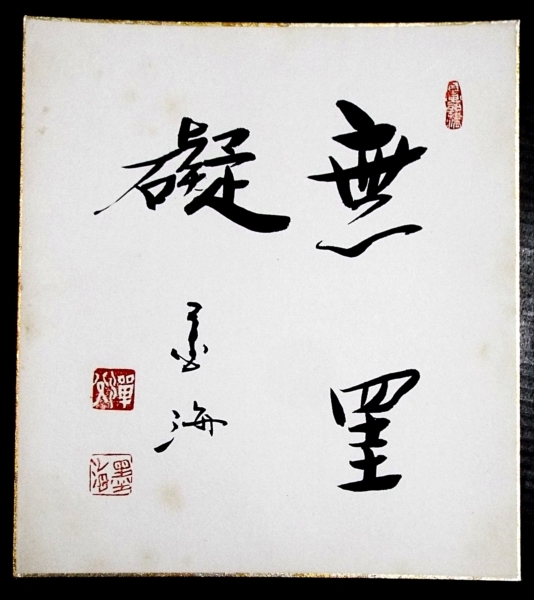 無罣
礙
墨海
墨海